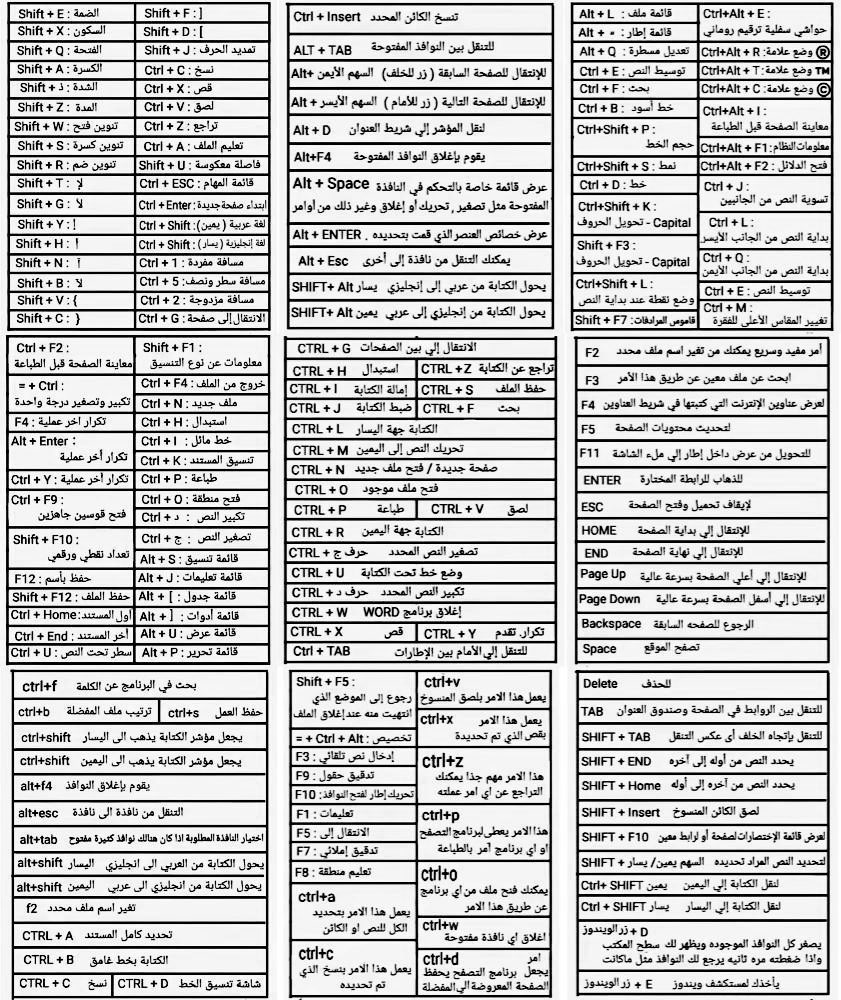 Alt + L : قائمة ملف
Alt + ء : قائمة إطار
Alt + Q : تعديل مسطرة
Ctrl + E : توسيط النص
Ctrl + F : بحث
Ctrl + B : خط أسود
Ctrl+Shift + P :
حجم الخط
Ctrl+Shift + S : نمط
Ctrl + D : خط
Ctrl+Shift + K :
Capital - تحويل الحروف
Shift + F3 :
Capital - تحويل الحروف
Ctrl+Shift + L :
وضع نقطة عند بداية النص
Shift + F7 : قاموس المرادفات
Ctrl+Alt + E :
حواشي سفلية ترقيم روماني
Ctrl+Alt + R : وضع علامة ®
Ctrl+Alt + T : وضع علامة ™
Ctrl+Alt + C : وضع علامة ©
Ctrl+Alt + I :
معاينة الصفحة قبل الطباعة
Ctrl+Alt + F1 : معلومات النظام
Ctrl+Alt + F2 : فتح الدلائل
Ctrl + J :
تسوية النص من الجانبين
Ctrl + L :
بداية النص من الجانب الأيسر
Ctrl + Q :
بداية النص من الجانب الأيمن
Ctrl + E : توسيط النص
Ctrl + M :
تغيير المقاس الأعلى للفقرة
Ctrl + Insert تنسخ الكائن المحدد
ALT + TAB للتنقل بين النوافذ المفتوحة
للإنتقال للصفحة السابقة ( زر للخلف ) السهم الأيمن +Alt
للإنتقال للصفحة التالية ( زر للأمام ) السهم الأيسر + Alt
Alt + D لنقل المؤشر إلي شريط العنوان
Alt+F4 يقوم بإغلاق النوافذ المفتوحة
Alt + Space عرض قائمة خاصة بالتحكم في النافذة
المفتوحة مثل تصغير , تحريك أو إغلاق وغير ذلك من أوامر
Alt + ENTER عرض خصائص العنصر الذي قمت بتحديده .
Alt + Esc يمكنك التنقل من نافذة إلى أخرى
SHIFT+ Alt يحول الكتابة من عربي إلى إنجليزي يسار
SHIFT+ Alt يحول الكتابة من إنجليزي إلى عربي يمين
Shift + E : الضمة
Shift + X : السكون
Shift + Q : الفتحة
Shift + A : الكسرة
Shift + ذ : الشدة
Shift + Z : المدة
Shift + W : تنوين فتح
Shift + S : تنوين كسرة
Shift + R : تنوين ضم
Shift + T : لإ
Shift + G : لأ
Shift + Y : إ
Shift + H : أ
Shift + N : آ
Shift + B : لآ
Shift + V : {
Shift + C : }
Shift + F : ]
Shift + D : [
Shift + J : تمديد الحرف
Ctrl + C : نسخ
Ctrl + X : قص
Ctrl + V : لصق
Ctrl + Z : تراجع
Ctrl + A : تعليم الملف
Shift + U : فاصلة معكوسة
Ctrl + ESC : قائمة المهام
Ctrl + Enter : ابتداء صفحة جديدة
Ctrl + Shift : (يمين) لغة عربية
Ctrl + Shift : (يسار) لغة إنجليزية
Ctrl + 1 : مسافة مفردة
Ctrl + 5 : مسافة سطر ونصف
Ctrl + 2 : مسافة مزدوجة
Ctrl + G : الانتقال إلى صفحة
F2 أمر مفيد وسريع يمكنك من تغير اسم ملف محدد
F3 ابحث عن ملف معين عن طريق هذا الأمر
F4 لعرض عناوين الإنترنت التي كتبتها في شريط العناوين
F5 لتحديث محتويات الصفحة
F11 للتحويل من عرض داخل إطار إلي ملء الشاشة
ENTER للذهاب للرابطة المختارة
ESC لإيقاف تحميل وفتح الصفحة
HOME للإنتقال إلي بداية الصفحة
END للإنتقال إلي نهاية الصفحة
Page Up للإنتقال إلي أعلي الصفحة بسرعة عالية
Page Down للإنتقال إلي أسفل الصفحة بسرعة عالية
Backspace الرجوع للصفحه السابقة
Space تصفح الموقع
CTRL + G الانتقال إلي بين الصفحات
CTRL + H استبدال
CTRL + Z تراجع عن الكتابة
CTRL + I إمالة الكتابة
CTRL + S حفظ الملف
CTRL + J ضبط الكتابة
CTRL + F بحث
CTRL + L الكتابة جهة اليسار
CTRL + M تحريك النص إلى اليمين
CTRL + N صفحة جديدة / فتح ملف جديد
CTRL + O فتح ملف موجود
CTRL + P طباعة
CTRL + V لصق
CTRL + R الكتابة جهة اليمين
CTRL + حرف ج تصغير النص المحدد
CTRL + U وضع خط تحت الكتابة
CTRL + حرف د تكبير النص المحدد
CTRL + W إغلاق برنامج WORD
CTRL + X قص
CTRL + Y تكرار. تقدم
Ctrl + TAB للتنقل إلي الأمام بين الإطارات
Ctrl + F2 :
معاينة الصفحة قبل الطباعة
= + Ctrl :
تكبير وتصغير درجة واحدة
F4 : تكرار اخر عملية
Alt + Enter :
تكرار أخر عملية
Ctrl + Y : تكرار أخر عملية
Ctrl + F9 :
فتح قوسين جاهزين
Shift + F10 :
تعداد نقطي ورقمي
F12 : حفظ بأسم
Shift + F12 : حفظ الملف
Ctrl + Home : أول المستند
Ctrl + End : أخر المستند
Ctrl + U : سطر تحت النص
Shift + F1 :
معلومات عن نوع التنسيق
Ctrl + F4 : خروج من الملف
Ctrl + N : ملف جديد
Ctrl + H : استبدال
Ctrl + I : خط مائل
Ctrl + K : تنسيق المستند
Ctrl + P : طباعة
Ctrl + O : فتح منطقة
Ctrl + د : تكبير النص
Ctrl + ج : تصغير النص
Alt + S : قائمة تنسيق
Alt + J : قائمة تعليمات
Alt + [ : قائمة جدول
Alt + ] : قائمة أدوات
Alt + U : قائمة عرض
Alt + P : قائمة تحرير
Delete للحذف
TAB للتنقل بين الروابط في الصفحة وصندوق العنوان
SHIFT + TAB للتنقل بإتجاه الخلف أى عكس التنقل
SHIFT + END يحدد النص من أوله إلى آخره
SHIFT + Home يحدد النص من آخره إلى أوله
SHIFT + Insert لصق الكائن المنسوخ
SHIFT + F10 لعرض قائمة الإختصارات لصفحة أو لرابط معين
SHIFT + السهم يمين/ يسار لتحديد النص المراد تحديده
Ctrl+ SHIFT يمين لنقل الكتابة إلي اليمين
Ctrl + SHIFT يسار لنقل الكتابة إلي اليسار
D + زر الويندوز
يصغر كل النوافذ الموجوده ويظهر لك سطح المكتب
واذا ضغطته مره ثانيه يرجع لك النوافذ مثل ماكانت
E + زر الويندوز يأخذك لمستكشف ويندوز
Shift + F5 :
رجوع إلى الموضع الذي
انتهيت منه عند إغلاق الملف
= + Ctrl + Alt : تخصيص
F3 : إدخال نص تلقائي
F9 : تدقيق حقول
F10 : تحريك إطار لفتح النوافذ
F1 : تعليمات
F5 : الانتقال إلى
F7 : تدقيق إملائي
F8 : تعليم منطقة
ctrl+a
يعمل هذا الامر بتحديد
الكل للنص او الكائن
ctrl+c
يعمل هذا الامر بنسخ الذي
تم تحديده
ctrl+v
يعمل هذا الامر بلصق المنسوخ
ctrl+x يعمل هذا الامر
بقص الذي تم تحديدة
ctrl+z
هذا الامر مهم جدا يمكنك
التراجع عن اي امر عملته
ctrl+p
هذا الامر يعطى لبرنامج التصفح
او اي برنامج أمر بالطباعة
ctrl+o
يمكنك فتح ملف من اي برنامج
عن طريق هذا الامر
ctrl+w
اغلاق اي نافذة مفتوحة
ctrl+d امر
يجعل برنامج التصفح يحفظ
الصفحة المعروضة الى المفضلة
ctrl+f بحث في البرنامج عن الكلمة
ctrl+b ترتيب ملف المفضلة
ctrl+s حفظ العمل
ctrl+shift يجعل مؤشر الكتابة يذهب الى اليسار
ctrl+shift يجعل مؤشر الكتابة يذهب الى اليمين
alt+f4 يقوم بإغلاق النوافذ
alt+esc التنقل من نافذة الى نافذة
alt+tab اختيار النافذة المطلوبة اذا كان هنالك نوافذ كثيرة مفتوح
alt+shift اليسار يحول الكتابة من العربي الى انجليزي
alt+shift اليمين يحول الكتابة من انجليزي الى عربي
f2 تغير اسم ملف محدد
CTRL + A تحديد كامل المستند
CTRL + B الكتابة بخط غامق
CTRL + C نسخ
CTRL + D شاشة تنسيق الخط